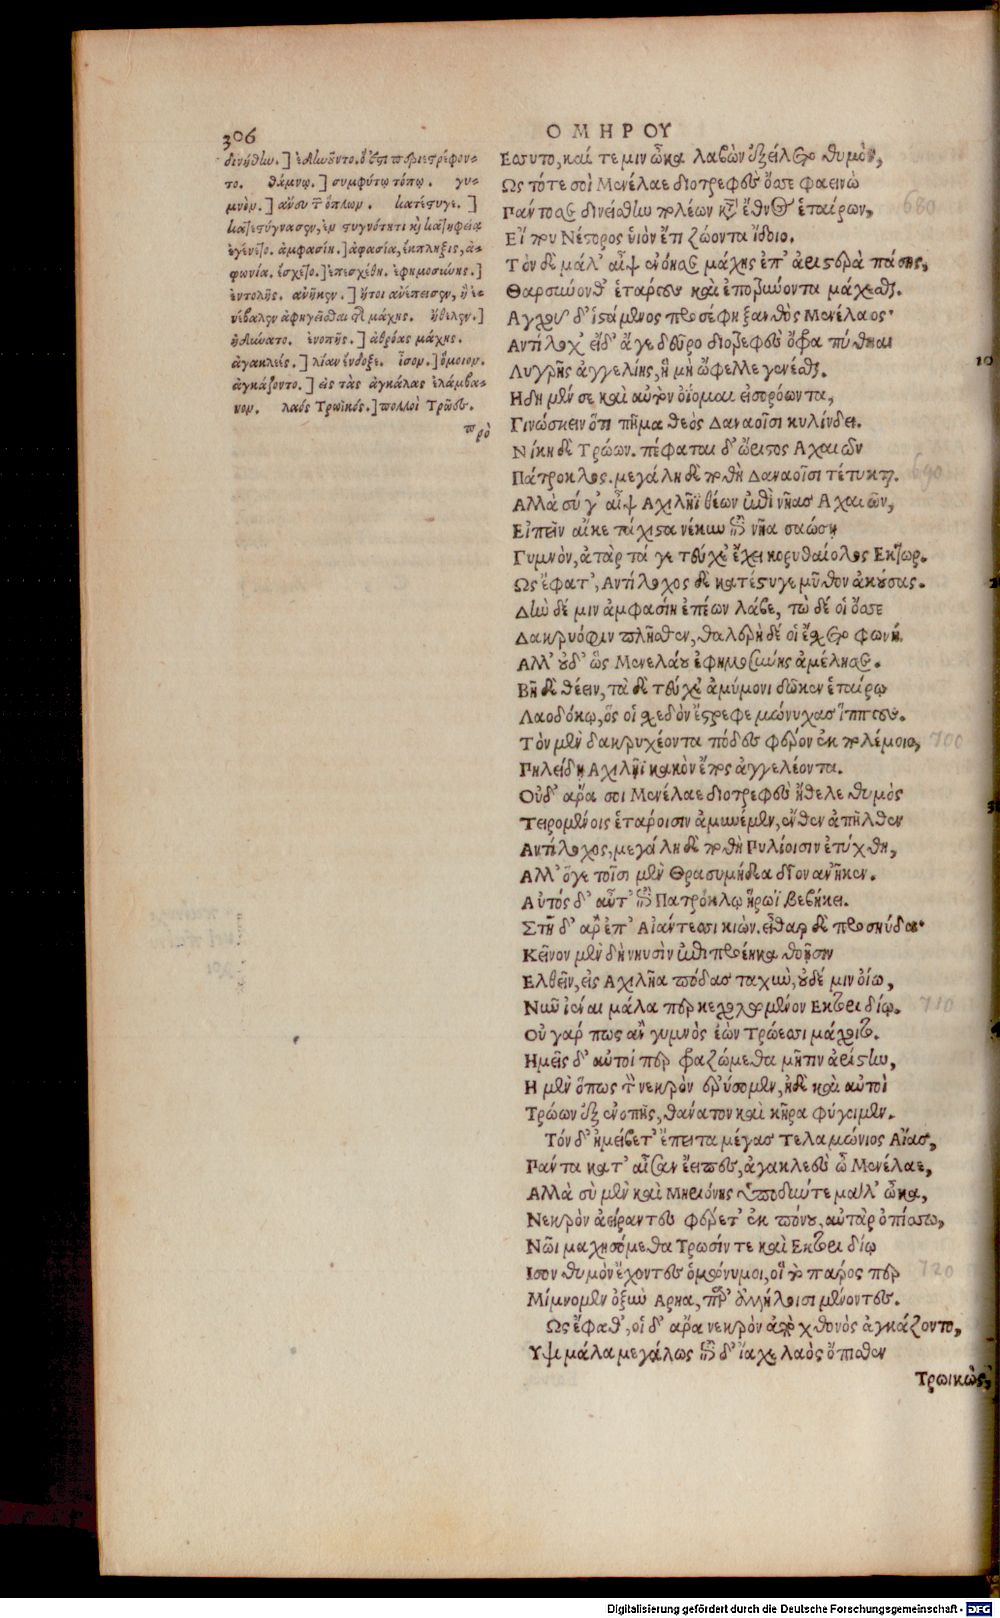 306
ΟΜΗΡΟΥ
δινήσθω.] ἐδινοῦντο. ὅ ἐστι περιεστρέφον-
το. θάμνῳ.] συμφύτῳ τόπῳ. γυ-
μνὸν.] ἄνευ τῶν ὅπλων. κατέστυγε.]
κατεστύγνασεν, ἐν στυγνότητι καὶ κατηφείᾳ
ἐγένετο. ἀμφασίη.] ἀφασία, ἔκπληξις, ἀ-
φωνία. ἔσχετο.] ἐπεσχέθη. ἐφημοσύνης.]
ἐντολῆς. ἀνῆκεν.] ἤτοι ἀνέπεισεν, ἢ ἐ-
νέβαλεν ἀφηγεῖσθαι τῆς μάχης. ἤθελεν.]
ἠδύνατο. ἐνοπῆς.] ἀθρόας μάχης.
ἀγακλεὲς.] λίαν ἔνδοξε. ἶσον.] ὅμοιον.
ἀγκάζοντο.] εἰς τὰς ἀγκάλας ἐλάμβα-
νον. λαὸς Τρωϊκός.] πολλοὶ Τρῶες.
πρὸ
Εσσυτο, καί τε μιν ὦκα λαβὼν ἐξείλετο θυμὸν,
Ως τότε σοὶ Μενέλαε διοτρεφὲς ὄσσε φαεινὼ
Παντοσε δινείσθω πολέων κατὰ ἔθνος ἑταίρων,
680
Εἴ που Νέστορος ὑιὸν ἔτι ζώοντα ἴδοιο.
Τὸν δὲ μάλ' αἶψ' ἐνόησε μάχης ἐπ' ἀριστερὰ πάσης,
Θαρσύνονθ' ἑτάρους καὶ ἐποτρύνοντα μάχεσθαι.
Αγχοῦ δ' ἱστάμενος προσέφη ξανθὸς Μενέλαος·
Αντίλοχ' εἴδ' ἄγε δεῦρο διοτρεφὲς ὄφρα πύθηαι
Λυγρῆς ἀγγελίης, ἣ μὴ ὤφελλε γενέσθαι.
Ηδη μέν σε καὶ αὐτὸν ὀΐομαι εἰσορόωντα,
Γινώσκειν ὅτι πῆμα θεὸς Δαναοῖσι κυλίνδει.
Νίκη δὲ Τρώων. πέφαται δ' ὤριστος Αχαιῶν
Πάτροκλος. μεγάλη δὲ ποθὴ Δαναοῖσι τέτυκται.
690
Αλλὰ σύ γ' αἶψ' Αχιλῆϊ θέων ἐπὶ νῆας Αχαιῶν,
Εἰπεῖν αἴκε τάχιστα νέκυν ἐπὶ νῆα σαώσῃ
Γυμνὸν, ἀτὰρ τά γε τεύχε' ἔχει κορυθαίολος Εκτωρ.
Ως ἔφατ', Αντίλοχος δὲ κατέστυγε μῦθον ἀκούσας.
Δὴν δέ μιν ἀμφασίη ἐπέων λάβε, τὼ δέ οἱ ὄσσε
Δακρυόφιν πλῆσθεν, θαλερὴ δέ οἱ ἔσχετο φωνή.
Αλλ' οὐδ' ὣς Μενελάου ἐφημοσύνης ἀμέλησε.
Βῆ δὲ θέειν, τὰ δὲ τεύχε' ἀμύμονι δῶκεν ἑταίρῳ
Λαοδόκῳ, ὅς οἱ σχεδὸν ἔστρεφε μώνυχας ἵππους.
Τὸν μὲν δακρυχέοντα πόδες φέρον ἐκ πολέμοιο,
700
Πηλείδῃ Αχιλῆϊ κακὸν ἔπος ἀγγελέοντα.
Οὐδ' ἄρα σοι Μενέλαε διοτρεφὲς ἤθελε θυμὸς
Τειρομένοις ἑτάροισιν ἀμυνέμεν, ἔνθεν ἀπῆλθεν
Αντίλοχος, μεγάλη δὲ ποθὴ Πυλίοισιν ἐτύχθη,
Αλλ' ὅγε τοῖσι μὲν Θρασυμήδεα δῖον ἀνῆκεν.
Αὐτός δ' αὖτ' ἐπὶ Πατρόκλῳ ἥρωϊ βεβήκει.
Στῆ δ' ἄρ ἐπ' Αἰάντεσσι κιὼν. εἶθαρ δὲ προσηύδα·
Κεῖνον μὲν δὴ νηυσὶν ἐπιπροέηκα θοῇσιν
Ελθεῖν, εἰς Αχιλῆα πόδας ταχὺν, οὐδέ μιν οἴω,
Νῦν ἰέναι μάλα περ κεχολωμένον Εκτορι δίῳ.
710
Οὐ γάρ πως ἂν γυμνὸς ἐὼν Τρώεσσι μάχοιτο.
Ημεῖς δ' αὐτοί περ φραζώμεθα μῆτιν ἀρίστην,
Η μὲν ὅπως τὸν νεκρὸν ἐρύσομεν, ἠδὲ καὶ αὐτοὶ
Τρώων ἐξ ἐνοπῆς, θάνατον καὶ κῆρα φύγοιμεν.
Τόν δ' ἠμείβετ' ἔπειτα μέγας Τελαμώνιος Αἴας,
Παντα κατ' αἶσαν ἔειπες, ἀγακλεὲς ὦ Μενέλαε,
Αλλὰ σὺ μὲν καὶ Μηριόνης ὑποδύντε μάλ' ὦκα,
Νεκρὸν ἀείραντες φέρετ' ἐκ πόνου, αὐτὰρ ὄπισσω,
Νῶι μαχησόμεθα Τρωσίν τε καὶ Εκτορι δίῳ
Ισον θυμὸν ἔχοντες ὁμώνυμοι, οἳ τὸ πάρος περ
720
Μίμνομεν ὀξὺν Αρηα, παρ' ἀλλήλοισι μένοντες.
Ως ἔφαθ', οἱ δ' ἄρα νεκρὸν ἀπὸ χθονὸς ἀγκάζοντο,
Υψι μάλα μεγάλως ἐπὶ δ' ἴαχε λαὸς ὄπισθεν
Τρωικὸς,
Digitalisierung gefördert durch die Deutsche Forschungsgemeinschaft - DFG